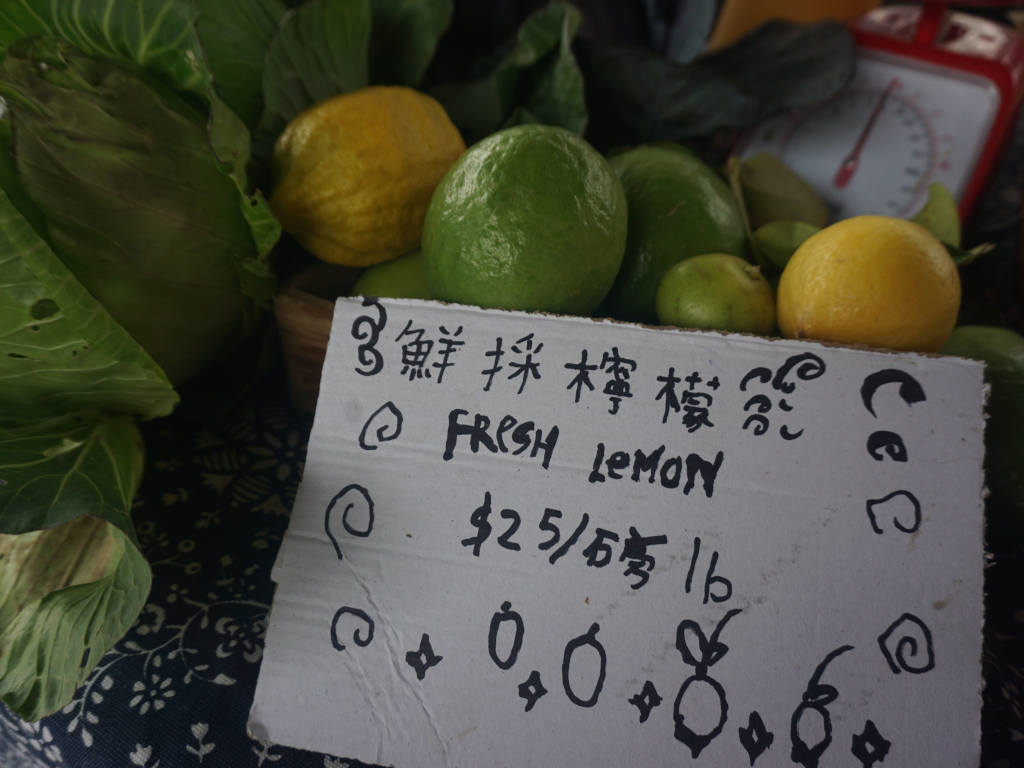 鮮採檸檬
FRESH LEMON
$25/磅 lb